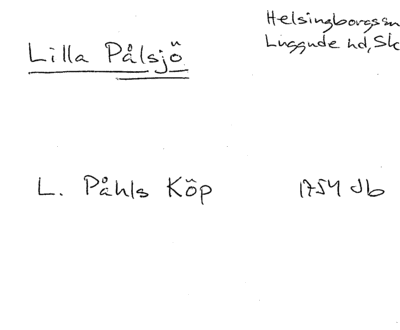 Lilla Pålsjö
Helsingborgssn
Luggude hd, Sk
L. Påhls Köp 1754 Jb